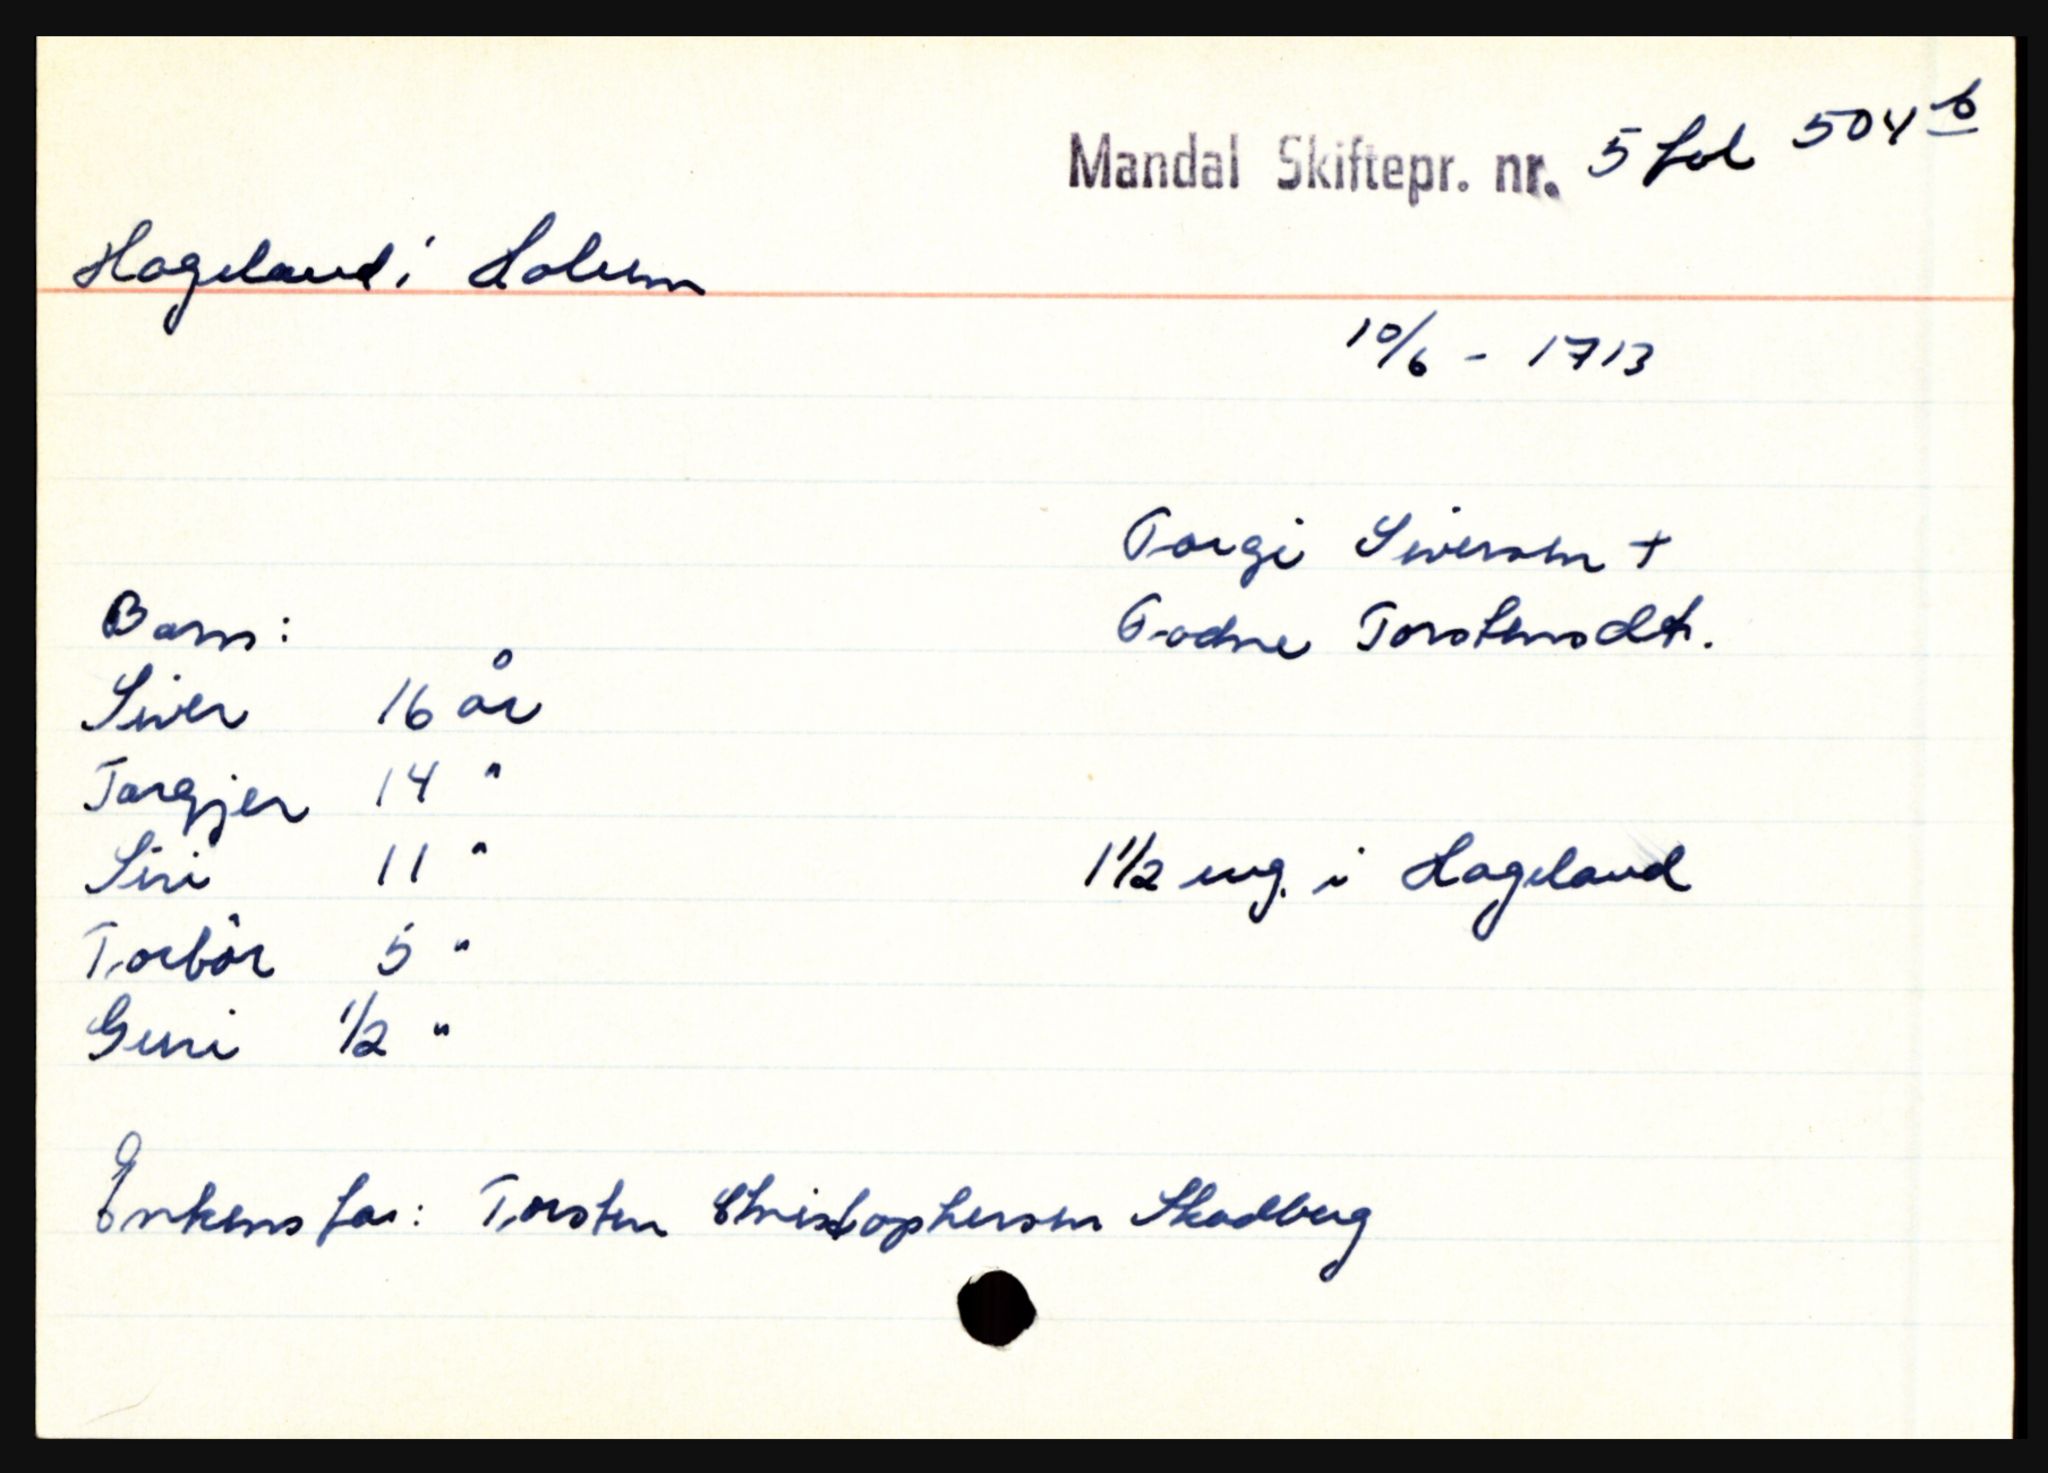 Mandal Skiftepr. nr. 5 fol 504 b
Hageland i Holum
10/6 - 1713
Torgi Siversen +
Todne Torstensdt.
Barn:
Siver 16 år
Targjer 14 "
Siri 11 "
Torbör 5 "
Guri 1/2 "
1 1/2 eng. i Hageland
Enkens far: Torsten Christophersen Skadberg